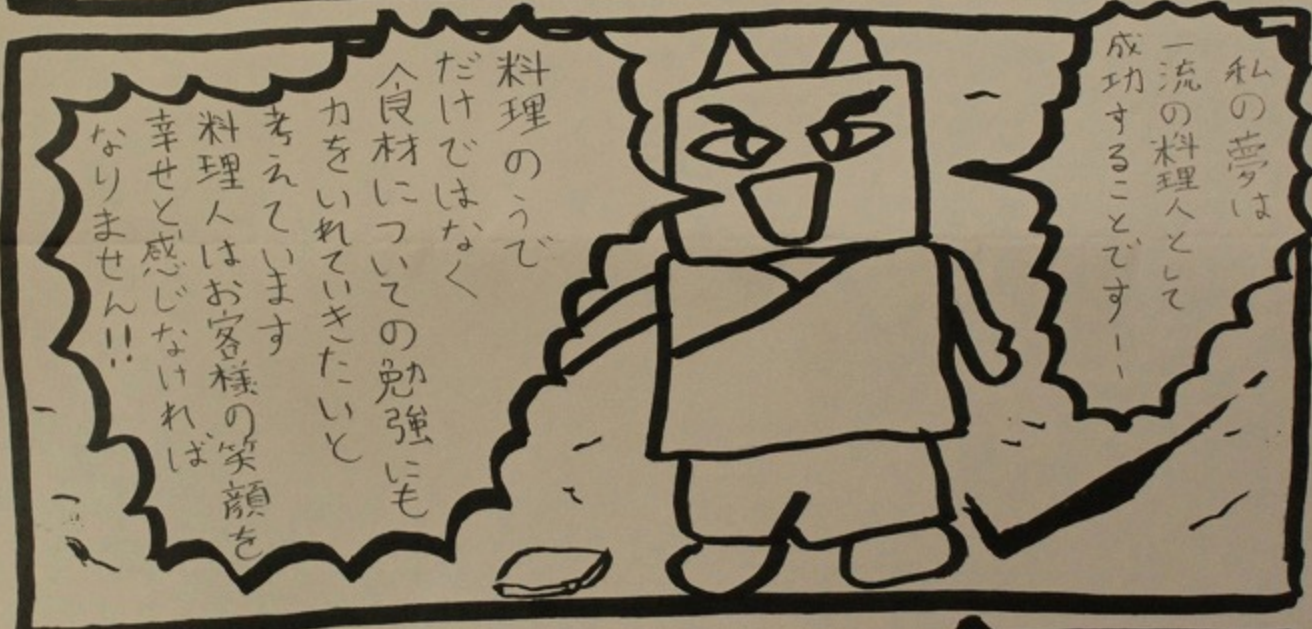 私の夢は
一流の料理人として
成功することですーー
料理のうで
だけではなく
食材についての勉強にも
力をいれていきたいと
考えています
料理人はお客様の笑顔を
幸せと感じなければ
なりません!!